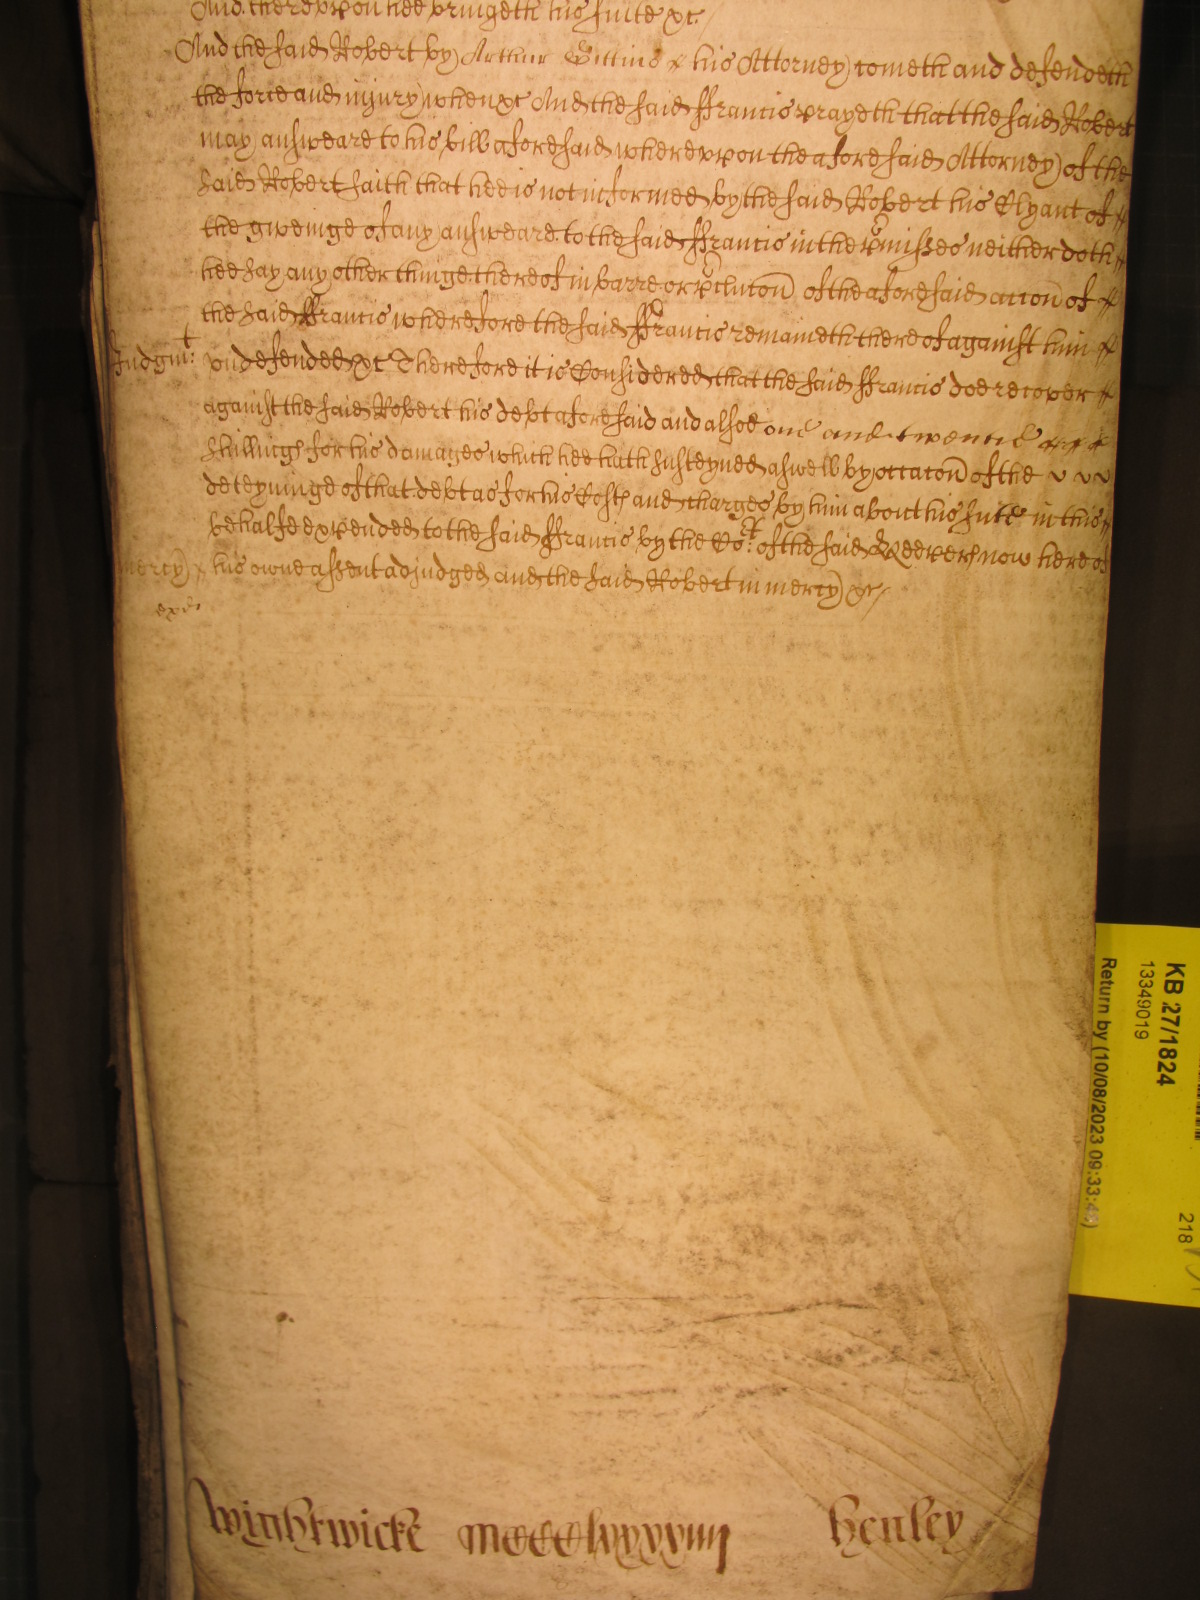 And thereupon hee bringeth his suite &c
And the said Robert by Arthur Gittins his Attorney cometh and defendeth
the force and injury when &c And the said ffrancis prayeth that the said Robert
may answeare to his bill aforesaid whereupon the aforesaid Attorney of the
said Robert saith that hee is not informed by the said Robert his Clyant of
the giveinge of any answeare to the said ffrancis in the p̱misses neither doth
hee say any other thinge thereof in barre or p̱clucon̄ of the aforesaid accon̄ of
the said ffrancis wherefore the said ffrancis remaineth thereof against him
Judgmt: undefended &c Therefore it is Considered that the said ffrancis doe recover
against the said Robert his debt aforesaid and alsoe one and twentie
shillings for his damages which hee hath susteyned aswell by occacon̄ of the
deteyninge of that debt as for his Costs and charges by him about his suite in this
behalfe expended to the said ffrancis by the Cort: of the said Keepers now here of
mercy his owne assent adjudged and the said Robert in mercy &c
Wightwicke mccclxxxxiiij Henley
KB 27/1824
13349019
Return by (10/08/2023 09:33:4
218